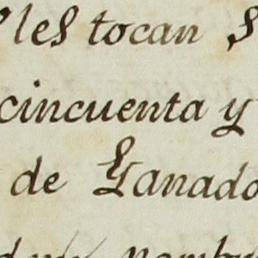 les tocan
cincuenta y
de Ganado